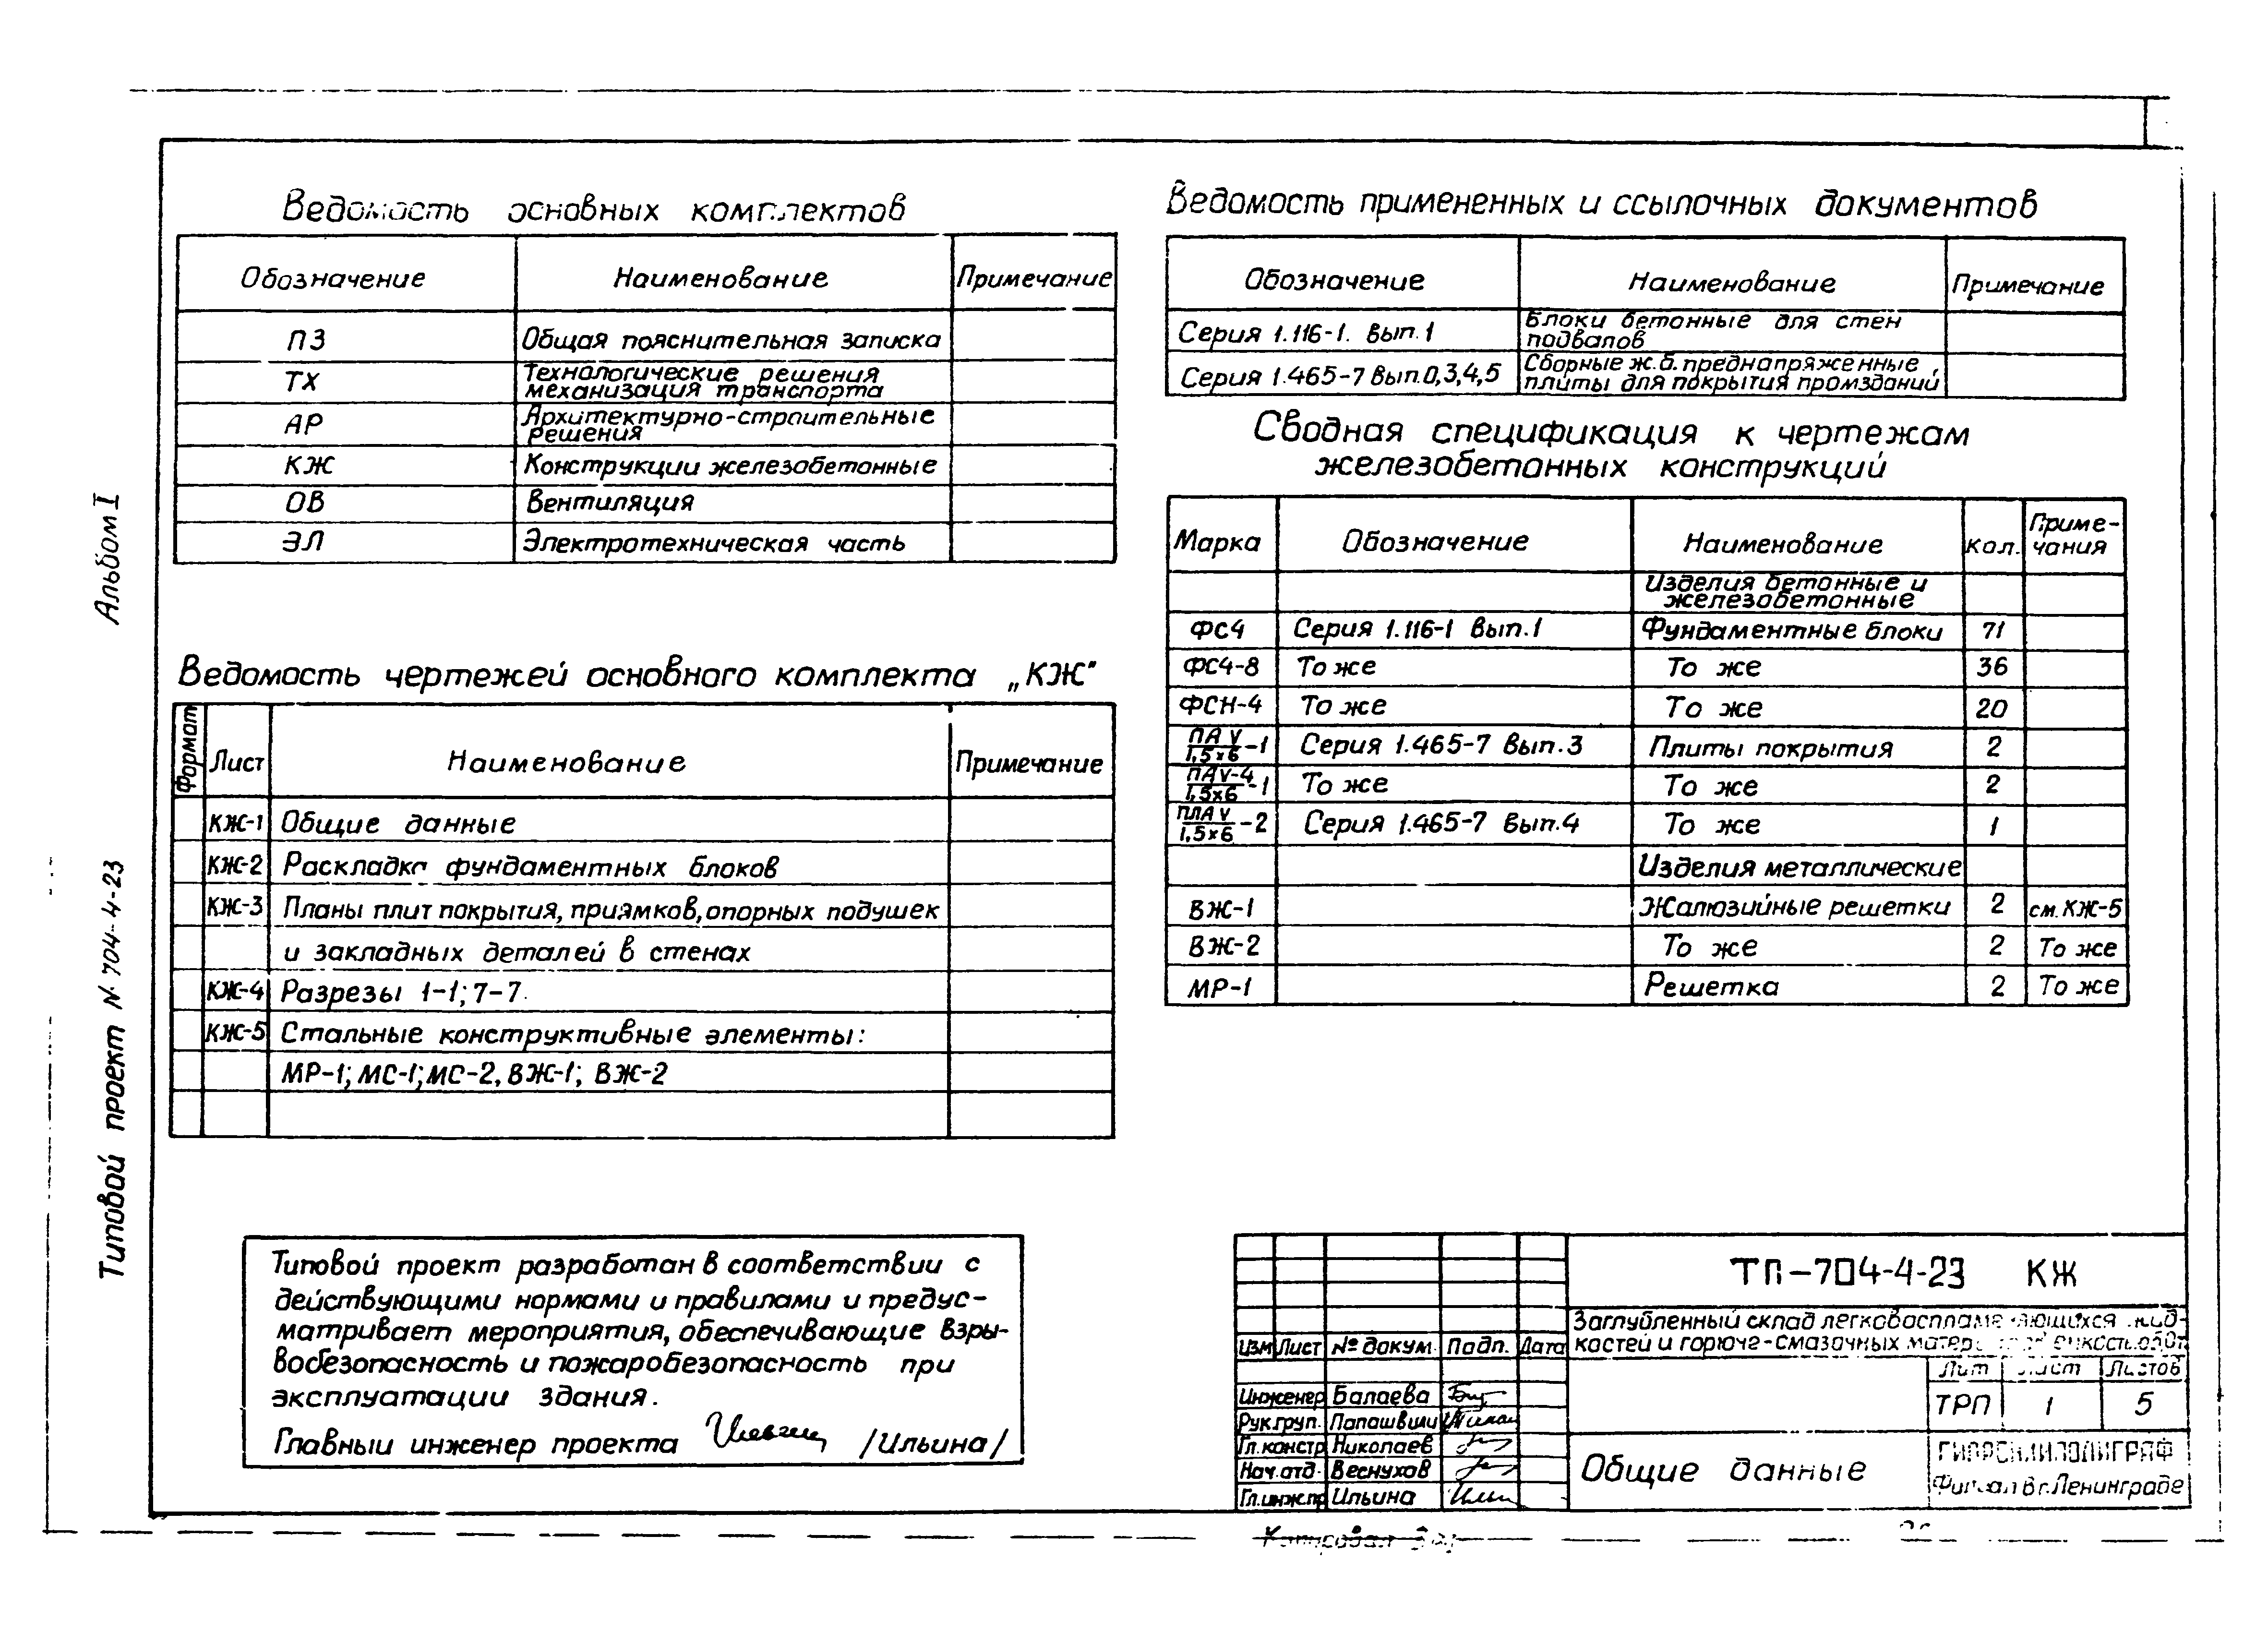 Альбом I
Типовой проект N 704-4-23
Ведомость основных комплектов
Обозначение Наименование Примечание
ПЗ Общая пояснительная записка
ТХ Технологические решения
механизация транспорта
АР Архитектурно-строительные
решения
КЖ Конструкции железобетонные
ОВ Вентиляция
ЭЛ Электротехническая часть
Ведомость чертежей основного комплекта „КЖ"
Формат Лист Наименование Примечание
КЖ-1 Общие данные
КЖ-2 Раскладка фундаментных блоков
КЖ-3 Планы плит покрытия, приямков, опорных подушек
и закладных деталей в стенах
КЖ-4 Разрезы 1-1; 7-7.
КЖ-5 Стальные конструктивные элементы:
МР-1; МС-1; МС-2, ВЖ-1; ВЖ-2
Типовой проект разработан в соответствии с
действующими нормами и правилами и предус-
матривает мероприятия, обеспечивающие взры-
вобезопасность и пожаробезопасность при
эксплуатации здания.
Главный инженер проекта /Ильина/
Ведомость примененных и ссылочных документов
Обозначение Наименование Примечание
Серия 1.116-1. Вып.1 Блоки бетонные для стен
подвалов
Серия 1.465-7 Вып.0,3,4,5 Сборные ж.б. преднапряженные
плиты для покрытия промзданий
Сводная спецификация к чертежам
железобетонных конструкций
Марка Обозначение Наименование Кол. Приме-
чания
Изделия бетонные и
железобетонные
ФС4 Серия 1.116-1 Вып.1 Фундаментные блоки 71
ФС4-8 То же То же 36
ФСН-4 То же То же 20
ПА V
1,5х6 -1 Серия 1.465-7 Вып.3 Плиты покрытия 2
ПАV-4
1,5х6 -1 То же То же 2
ПЛА V
1,5х6 -2 Серия 1.465-7 Вып.4 То же 1
Изделия металлические
ВЖ-1 Жалюзийные решетки 2 см. КЖ-5
ВЖ-2 То же 2 То же
МР-1 Решетка 2 То же
ТП-704-4-23 КЖ
Заглубленный склад легковоспламеняющихся жид-
костей и горюче-смазочных
Изм Лист № докум. Подп. Дата
Лит Лист Листов
ТРП 1 5
Инженер Балаева
Рук.груп. Папашвили
Гл.констр Николаев
Нач.отд. Веснухов
Гл.инж.пр Ильина
Общие данные
ГИПРОНИИПОЛИГРАФ
Филиал в г. Ленинграде
Копировал